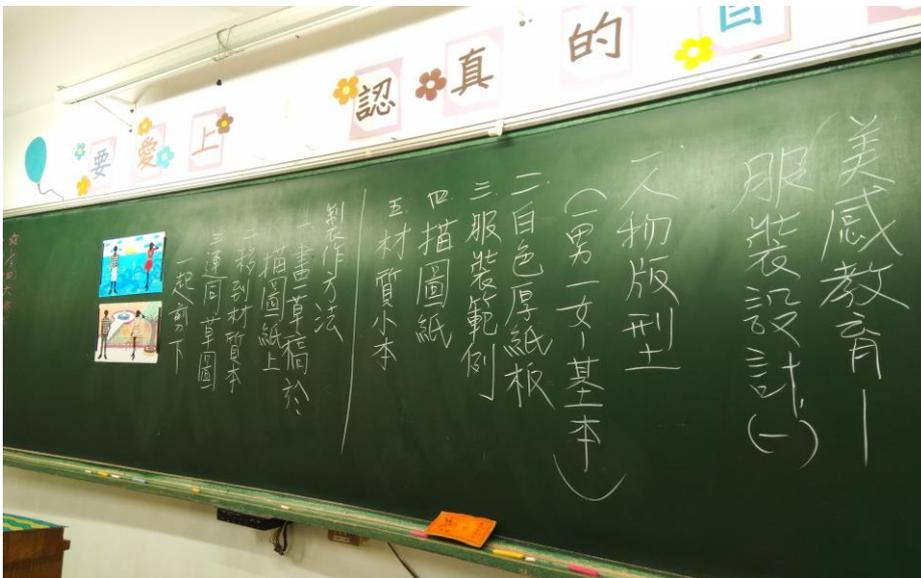 要愛上認真的自
美感教育—
服裝設計(一)
一.人物版型
(一男一女-基本)
二.白色厚紙板
三.服裝範例
四.描圖紙
五.材質小本
製作方法
一.畫草稿於
描圖紙上
二.移到材質本
三.連同草圖
一起剪下